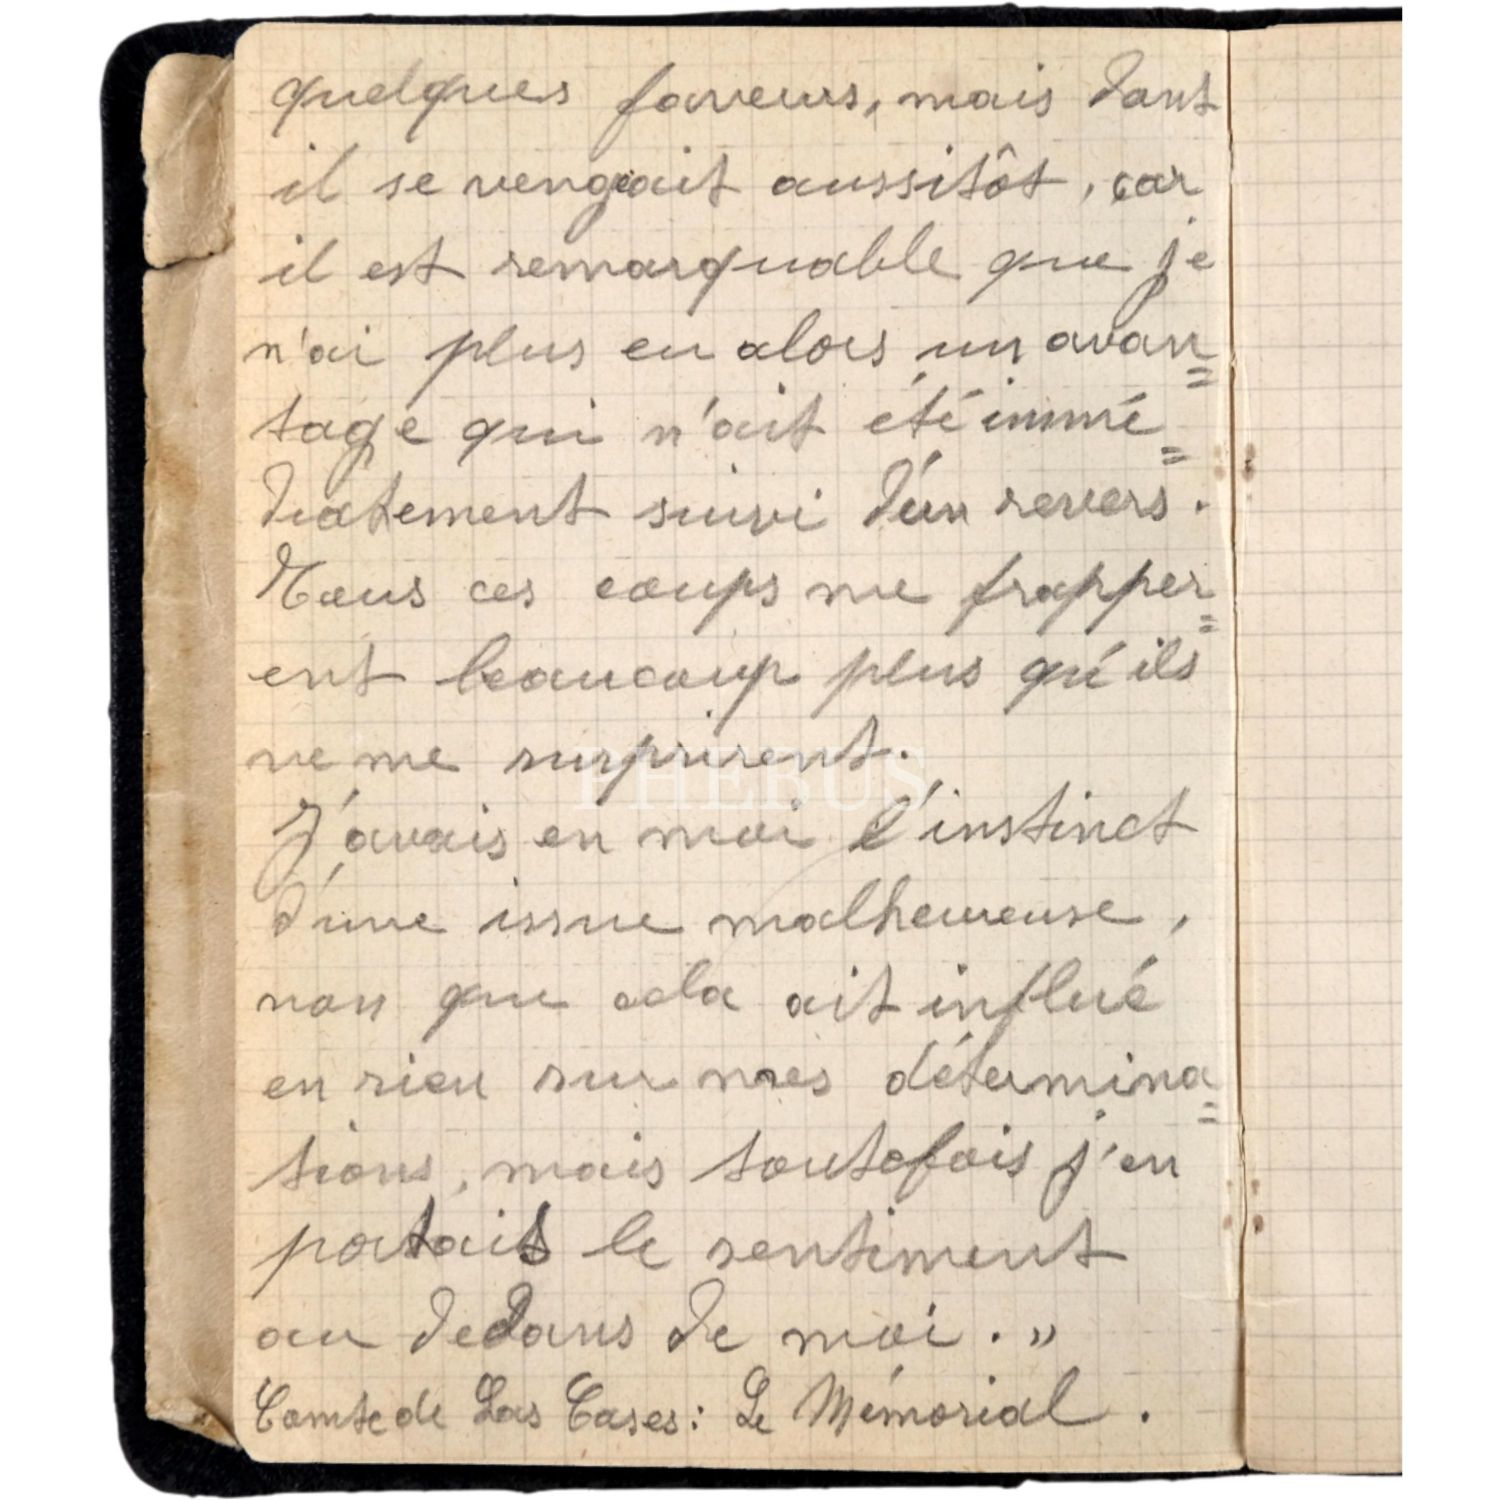 quelques faveurs, mais dont
il se vengeait aussitôt, car
il est remarquable que je
n'ai plus eu alors un avan=
tage qui n'ait été immé=
diatement suivi d'un revers.
Tous ces coups me frappèr=
ent beaucoup plus qu'ils
ne me surprirent.
PHEBUS
J'avais en moi l'instinct
d'une issue malheureuse,
non que cela ait influé
en rien sur mes détermina=
tions, mais toutefois j'en
portais le sentiment
au dedans de moi. »
Comte de Las Cases : Le Mémorial.